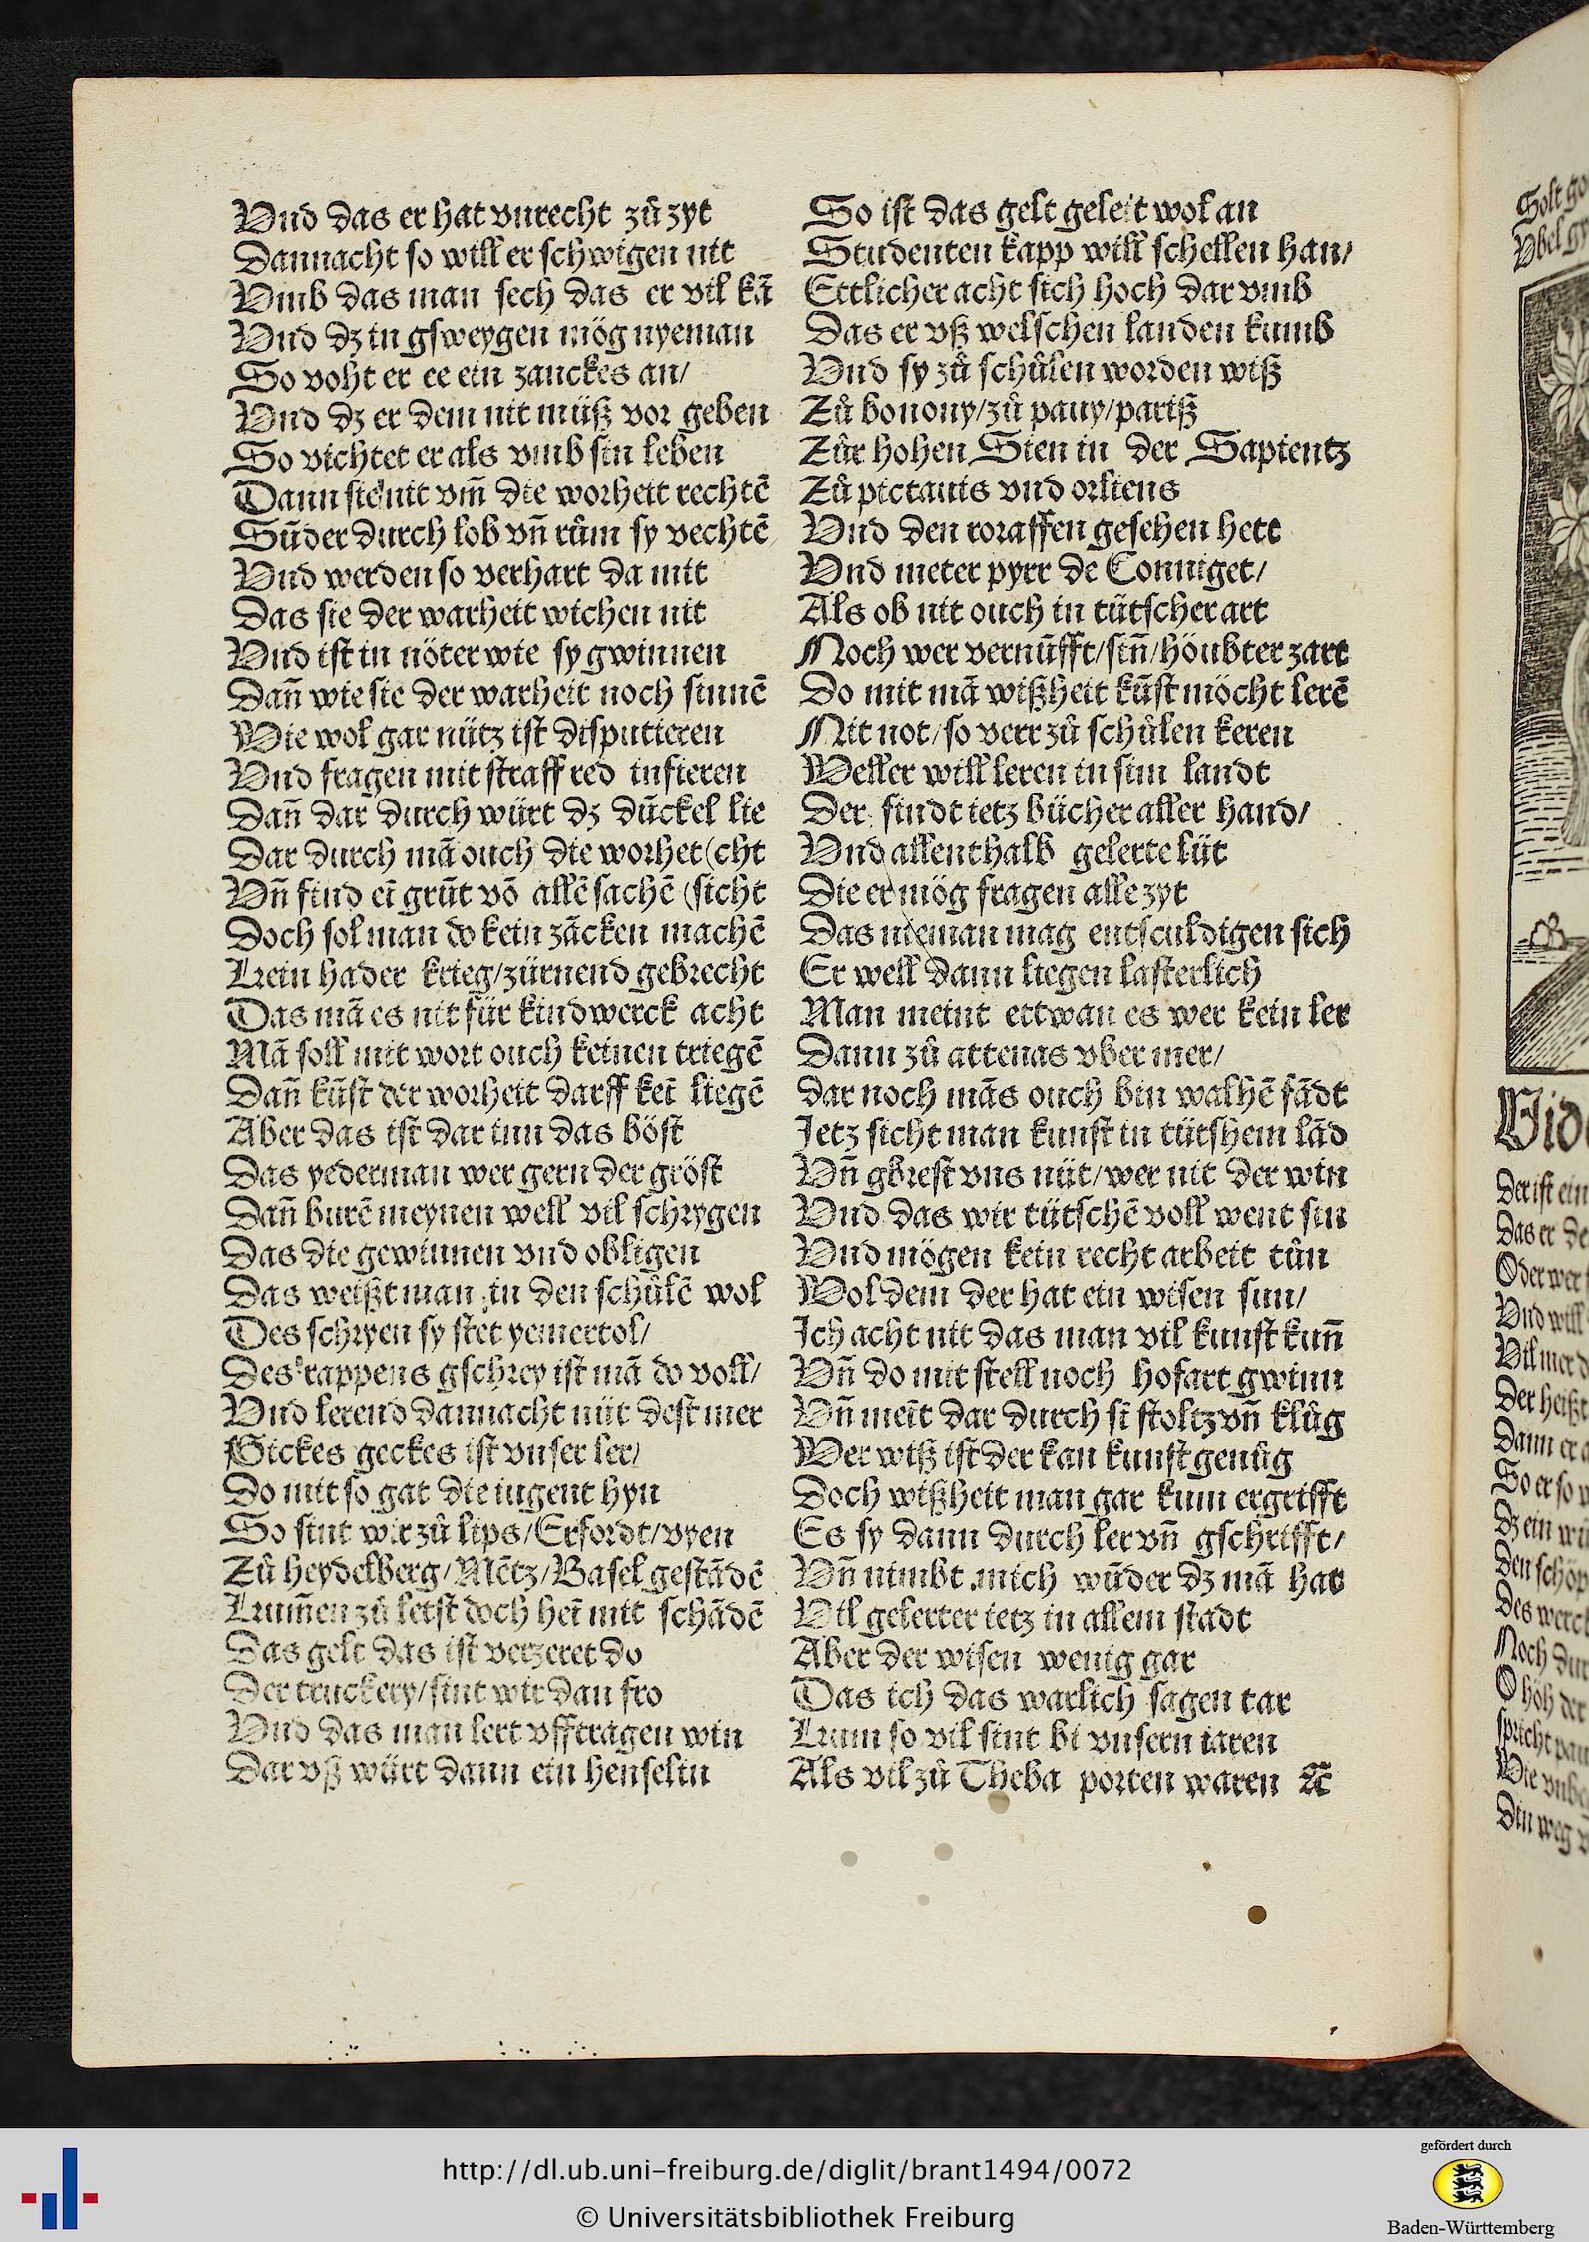 Vnd das er hat vnrecht zů zyt
Dannacht so will er schwigen nit
Vmb das man sech das er vil kā
Vnd dz in gsweygen mög nyeman
So voht er ee ein zanckes an/
Vnd dz er dem nit müß vor geben
So vichtet er als vmb sin leben
Dann sie nit vm̄ die worheit rechtē
Sūder durch lob vn̄ rům sy vechtē
Vnd werden so verhart da mit
Das sie der warheit wichen nit
Vnd ist in nöter wie sy gwinnen
Dan̄ wie sie der warheit noch sinnē
Wie wol gar nütz ist disputieren
Vnd fragen mit straff red infieren
Dan̄ dar durch würt dz dūckel lie
Dar durch mā ouch die worhet (cht
Vn̄ find eī grūt vō allē sachē (sicht
Doch sol man do kein zācken machē
Kein hader krieg/zürnend gebrecht
Das mā es nit für kindwerck acht
Mā soll mit wort ouch keinen triegē
Dan̄ kūst der worheit darff keī liegē
Aber das ist dar inn das böst
Das yederman wer gern der gröst
Dan̄ burē meynen well vil schrygen
Das die gewinnen vnd obligen
Das weißt man in den schůlē wol
Des schryen sy stet yemertol/
Des rappens gschrey ist mā do voll/
Vnd lerend dannacht nüt dest mer
Gickes geckes ist vnser ler/
Do mit so gat die iugent hyn
So sint wir zů lips/Erfordt/vyen
Zů heydelberg/Mētz/Basel gestādē
Kum̄en zů letst doch heī mit schādē
Das gelt das ist verzeret do
Der truckery/sint wir dan fro
Vnd das man lert vfftragen win
Dar vß würt dann ein henselin
So ist das gelt geleit wol an
Studenten kapp will schellen han/
Ettlicher acht sich hoch dar vmb
Das er vß welschen landen kumb
Vnd sy zů schůlen worden wiß
Zů bonony/zů pauy/pariß
Zůr hohen Sien in der Sapientz
Zů pictauis vnd orliens
Vnd den roraffen gesehen hett
Vnd meter pyrr de Conniget/
Als ob nit ouch in tütscher art
Noch wer vernūfft/sin̄/höubter zart
Do mit mā wißheit kūst möcht lerē
Nit not/so verr zů schůlen keren
Weller will leren in sim landt
Der findt ietz bücher aller hand/
Vnd allenthalb gelerte lüt
Die er mög fragen alle zyt
Das nieman mag entsculdigen sich
Er well dann liegen lasterlich
Man meint ettwan es wer kein ler
Dann zů attenas vber mer/
dar noch mās ouch bin walhē fādt
Jetz sicht man kunst in tütshem lād
Vn̄ gbrest vns nüt/wer nit der win
Vnd das wir tütschē voll went sin
Vnd mögen kein recht arbeit tůn
Wol dem der hat ein wisen sun/
Ich acht nit das man vil kunst kun̄
Vn̄ do mit stell noch hofart gwinn
Vn̄ meīt dar durch sī stoltz vn̄ klůg
Wer wiß ist der kan kunst genůg
Doch wißheit man gar kum ergrifft
Es sy dann durch ler vn̄ gschrifft/
Vn̄ nimbt mich wūder dz mā hat
Vil gelerter ietz in allem stadt
Aber der wisen wenig gar
Das ich das warlich sagen tar
Kum so vil sint bi vnsern iaren
Als vil zů Theba porten waren ⁊c̄
Der ist ein
Das er de
Oder wer
Vnd will
Vil mer d
Der heißt
Dann er
So er so
Dz ein
Den schöp
Des werck
Noch dur
O hoh der
spricht
Wie vnbe
Din weg
http://dl.ub.uni-freiburg.de/diglit/brant1494/0072
© Universitätsbibliothek Freiburg
gefördert durch
Baden-Württemberg